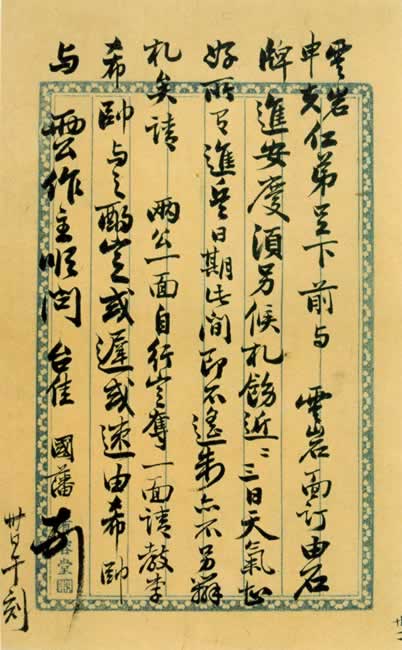 雲岩
申夫仁弟足下前与 雲岩面訂由石
牌進安慶須另候札飭近二三日天氣甚
好所有進兵日期此間即不遙制亦不另辦
札矣請 兩公一面自行定奪一面請教李
希帥与之酌定或遲或速由希帥
与 兩公作主順問 台佳 國藩 頓
卅日午刻